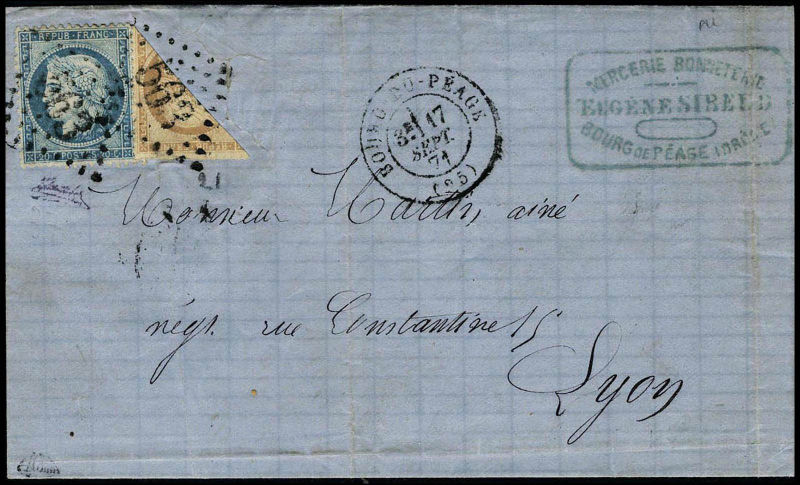 REPUB. FRANC.
POSTES
BOURG-DU-PÉAGE
3E 17
SEPT.
71
(25)
MERCERIE BONNETERIE
EUGÈNE
BOURG DE PÉAGE (DRÔME)
Monsieur Martin, ainé
négt. rue Constantine 15
Lyon